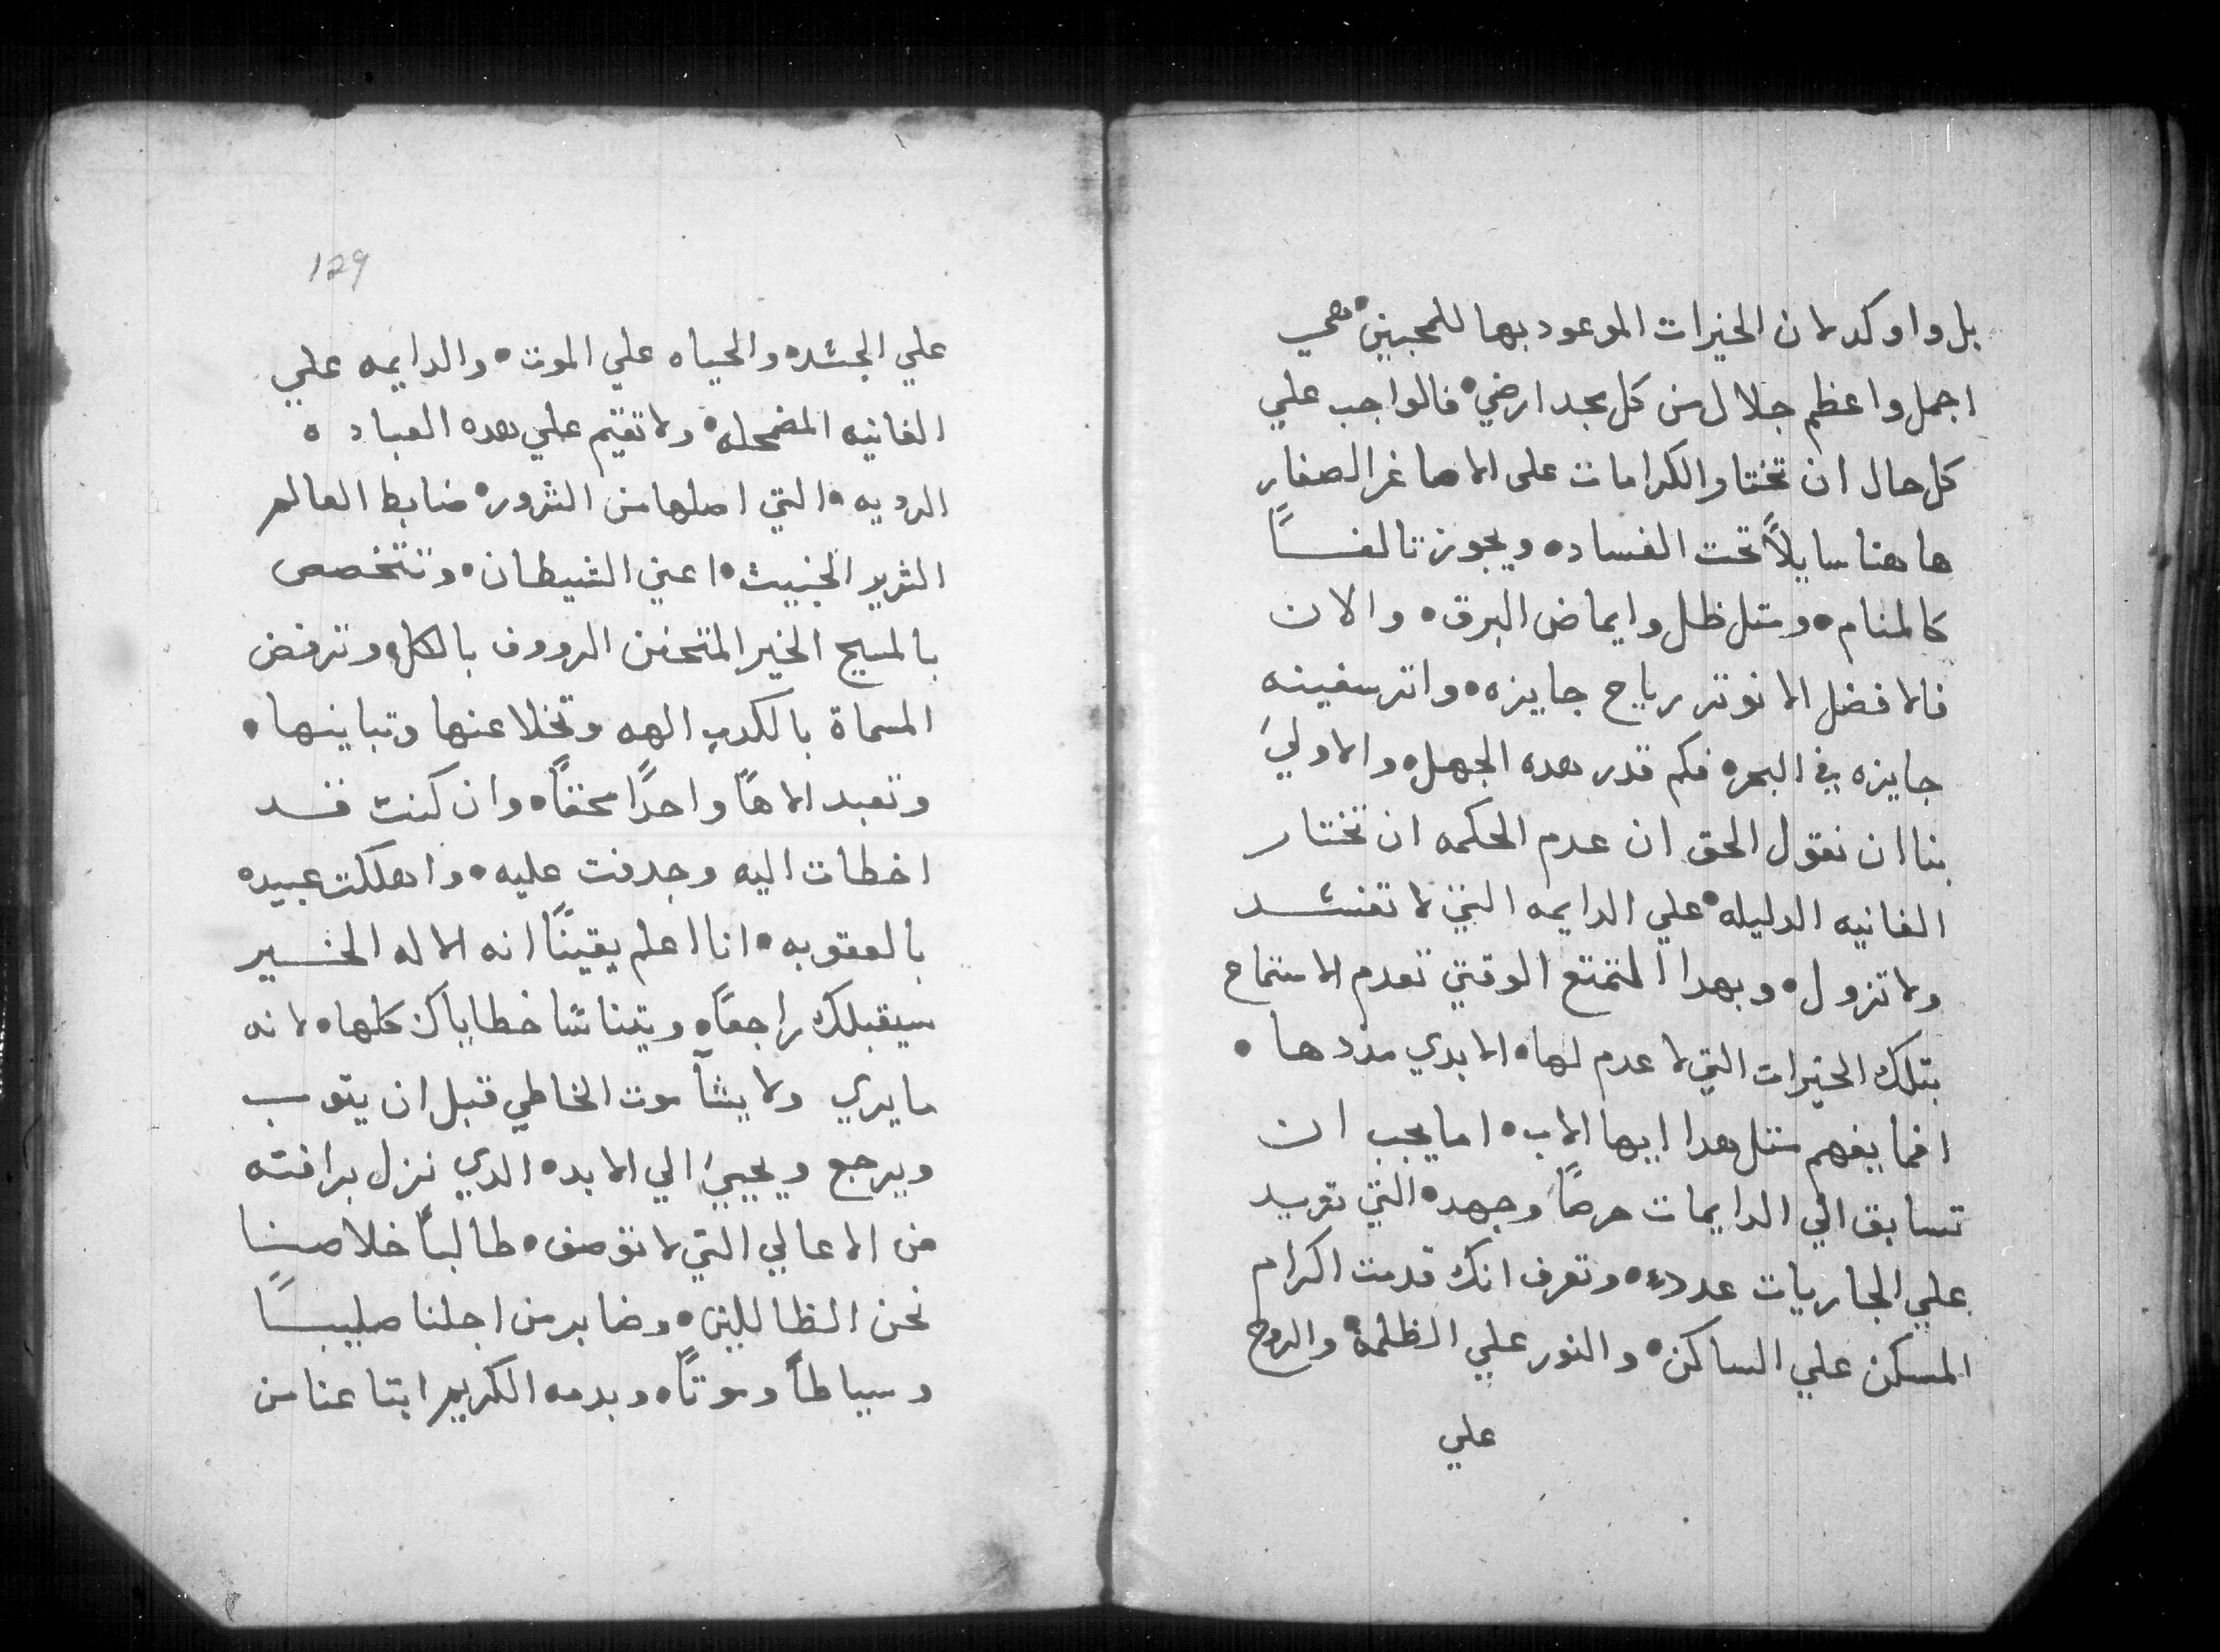 بل واوكد لان الخيرات الموعود بها للمحبين هي
اجمل واعظم جلال من كل مجد ارضي فالواجب علي
كل حال ان تختار الكرامات على الاصاغر الصغار
هاهنا سايلاً تحت الفساد ويجوز تالفاً
كالمنام ومتل ظل وايماض البرق والان
فالافضل الا نوتر رياح جايزه واتر سفينه
جايزه في البحر فكم قدر هده الجهل والاولي
بنا ان نقول الحق ان عدم الحكمه ان نختار
الفانيه الدليله علي الدايمه التي لا تفسد
ولا تزول وبهدا التمتع الوقتي تعدم الاستماح
بتلك الخيرات التي لا عدم لها الابدي مددها
افما يفهم متل هدا ايها الاب اما يجب ان
تسابق الي الدايمات حرصاً وجهد التي تفريد
علي الجاريات عدده وتعرف انك قدمت اكرام
المسكن علي الساكن والنور علي الظلمة والروح
علي
129
علي الجسد والحياه علي الموت والدايمه علي
الفانيه المضمحله ولا تقيم علي هده العباده
الرديه التي اصلها من الشرور ضابط العالم
الشرير الخبيث اعني الشيطان وتتخصص
بالمسيح الخير المتحنن الرووف بالكل وترفض
المسماة بالكدب الهه وتخلا عنها وتباينها
وتعبد الاهاً واحداً محقاً وان كنت قد
اخطات اليه وجدفت عليه واهلكت عبيده
بالعقوبه انا اعلم يقيناً انه الاله الخير
سيقبلك راجعاً ويتناسا خطاياك كلها لانه
ما يري ولا يشآ موت الخاطي قبل ان يتوب
ويرجع ويحيي الي الابد الدي نزل برافته
من الاعالي التي لا توصف طالباً خلاصنا
نحن الظاللين وصابر من اجلنا صليباً
وسياطاً وموتاً وبدمه الكريم ابتاعنا من